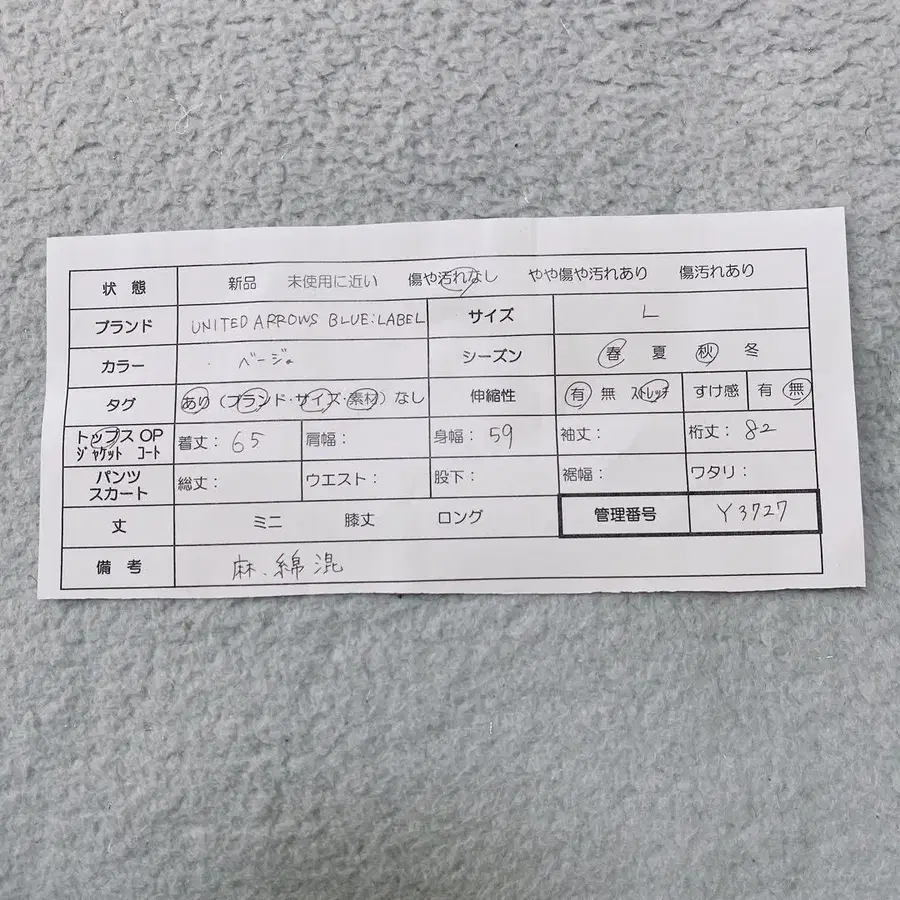 状 態 新品 未使用に近い 傷や汚れなし やや傷や汚れあり 傷汚れあり
ブランド UNITED ARROWS BLUE:LABEL サイズ L
カラー ベージュ シーズン 春 夏 秋 冬
タグ あり (ブランド・サイズ・素材) なし 伸縮性 有 無 ストレッチ すけ感 有 無
トップス OP
ジャケット コート 着丈: 65 肩幅: 身幅: 59 袖丈: 裄丈: 82
パンツ
スカート 総丈: ウエスト: 股下: 裾幅: ワタリ:
丈 ミニ 膝丈 ロング 管理番号 Y3727
備 考 麻、綿 混